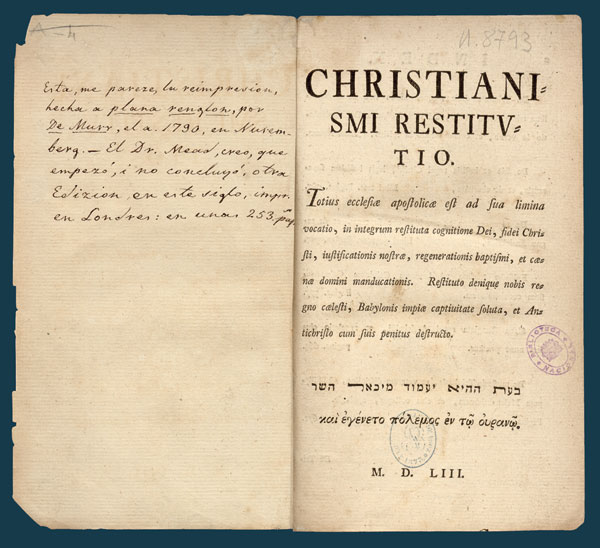 A-4
Esta, me pareze, la reimpresion,
hecha a plana renglon, por
De Murr, el a 1790, en Nurem-
berg. — El Dr. Mead, creo, que
empezó, i no concluyó, otra
Edizion, en este siglo, impr.
en Londres: en unas 253. pag
U.8793
CHRISTIANI-
SMI RESTITV-
TIO.
Totius ecclesiæ apostolicæ est ad sua limina
vocatio, in integrum restituta cognitione Dei, fidei Chri-
sti, iustificationis nostræ, regenerationis baptismi, et cœ-
næ domini manducationis. Restituto denique nobis re-
gno cælesti, Babylonis impiæ captiuitate soluta, et An-
tichristo cum suis penitus destructo.
בעת ההיא יעמוד מיכאל השר
καὶ ἐγένετο πόλεμος ἐν τῷ οὐρανῷ.
M. D. LIII.